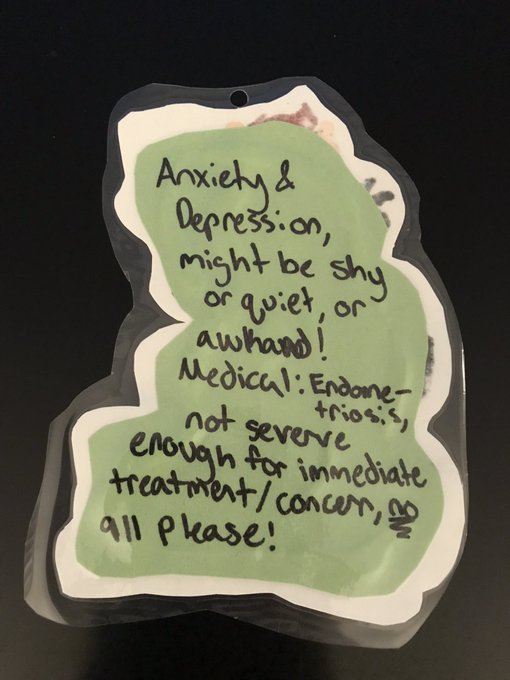 Anxiety &
Depression,
might be shy
or quiet, or
awkward!
Medical: Endome-
triosis,
not severve
enough for immediate
treatment/concern, no
911 please!